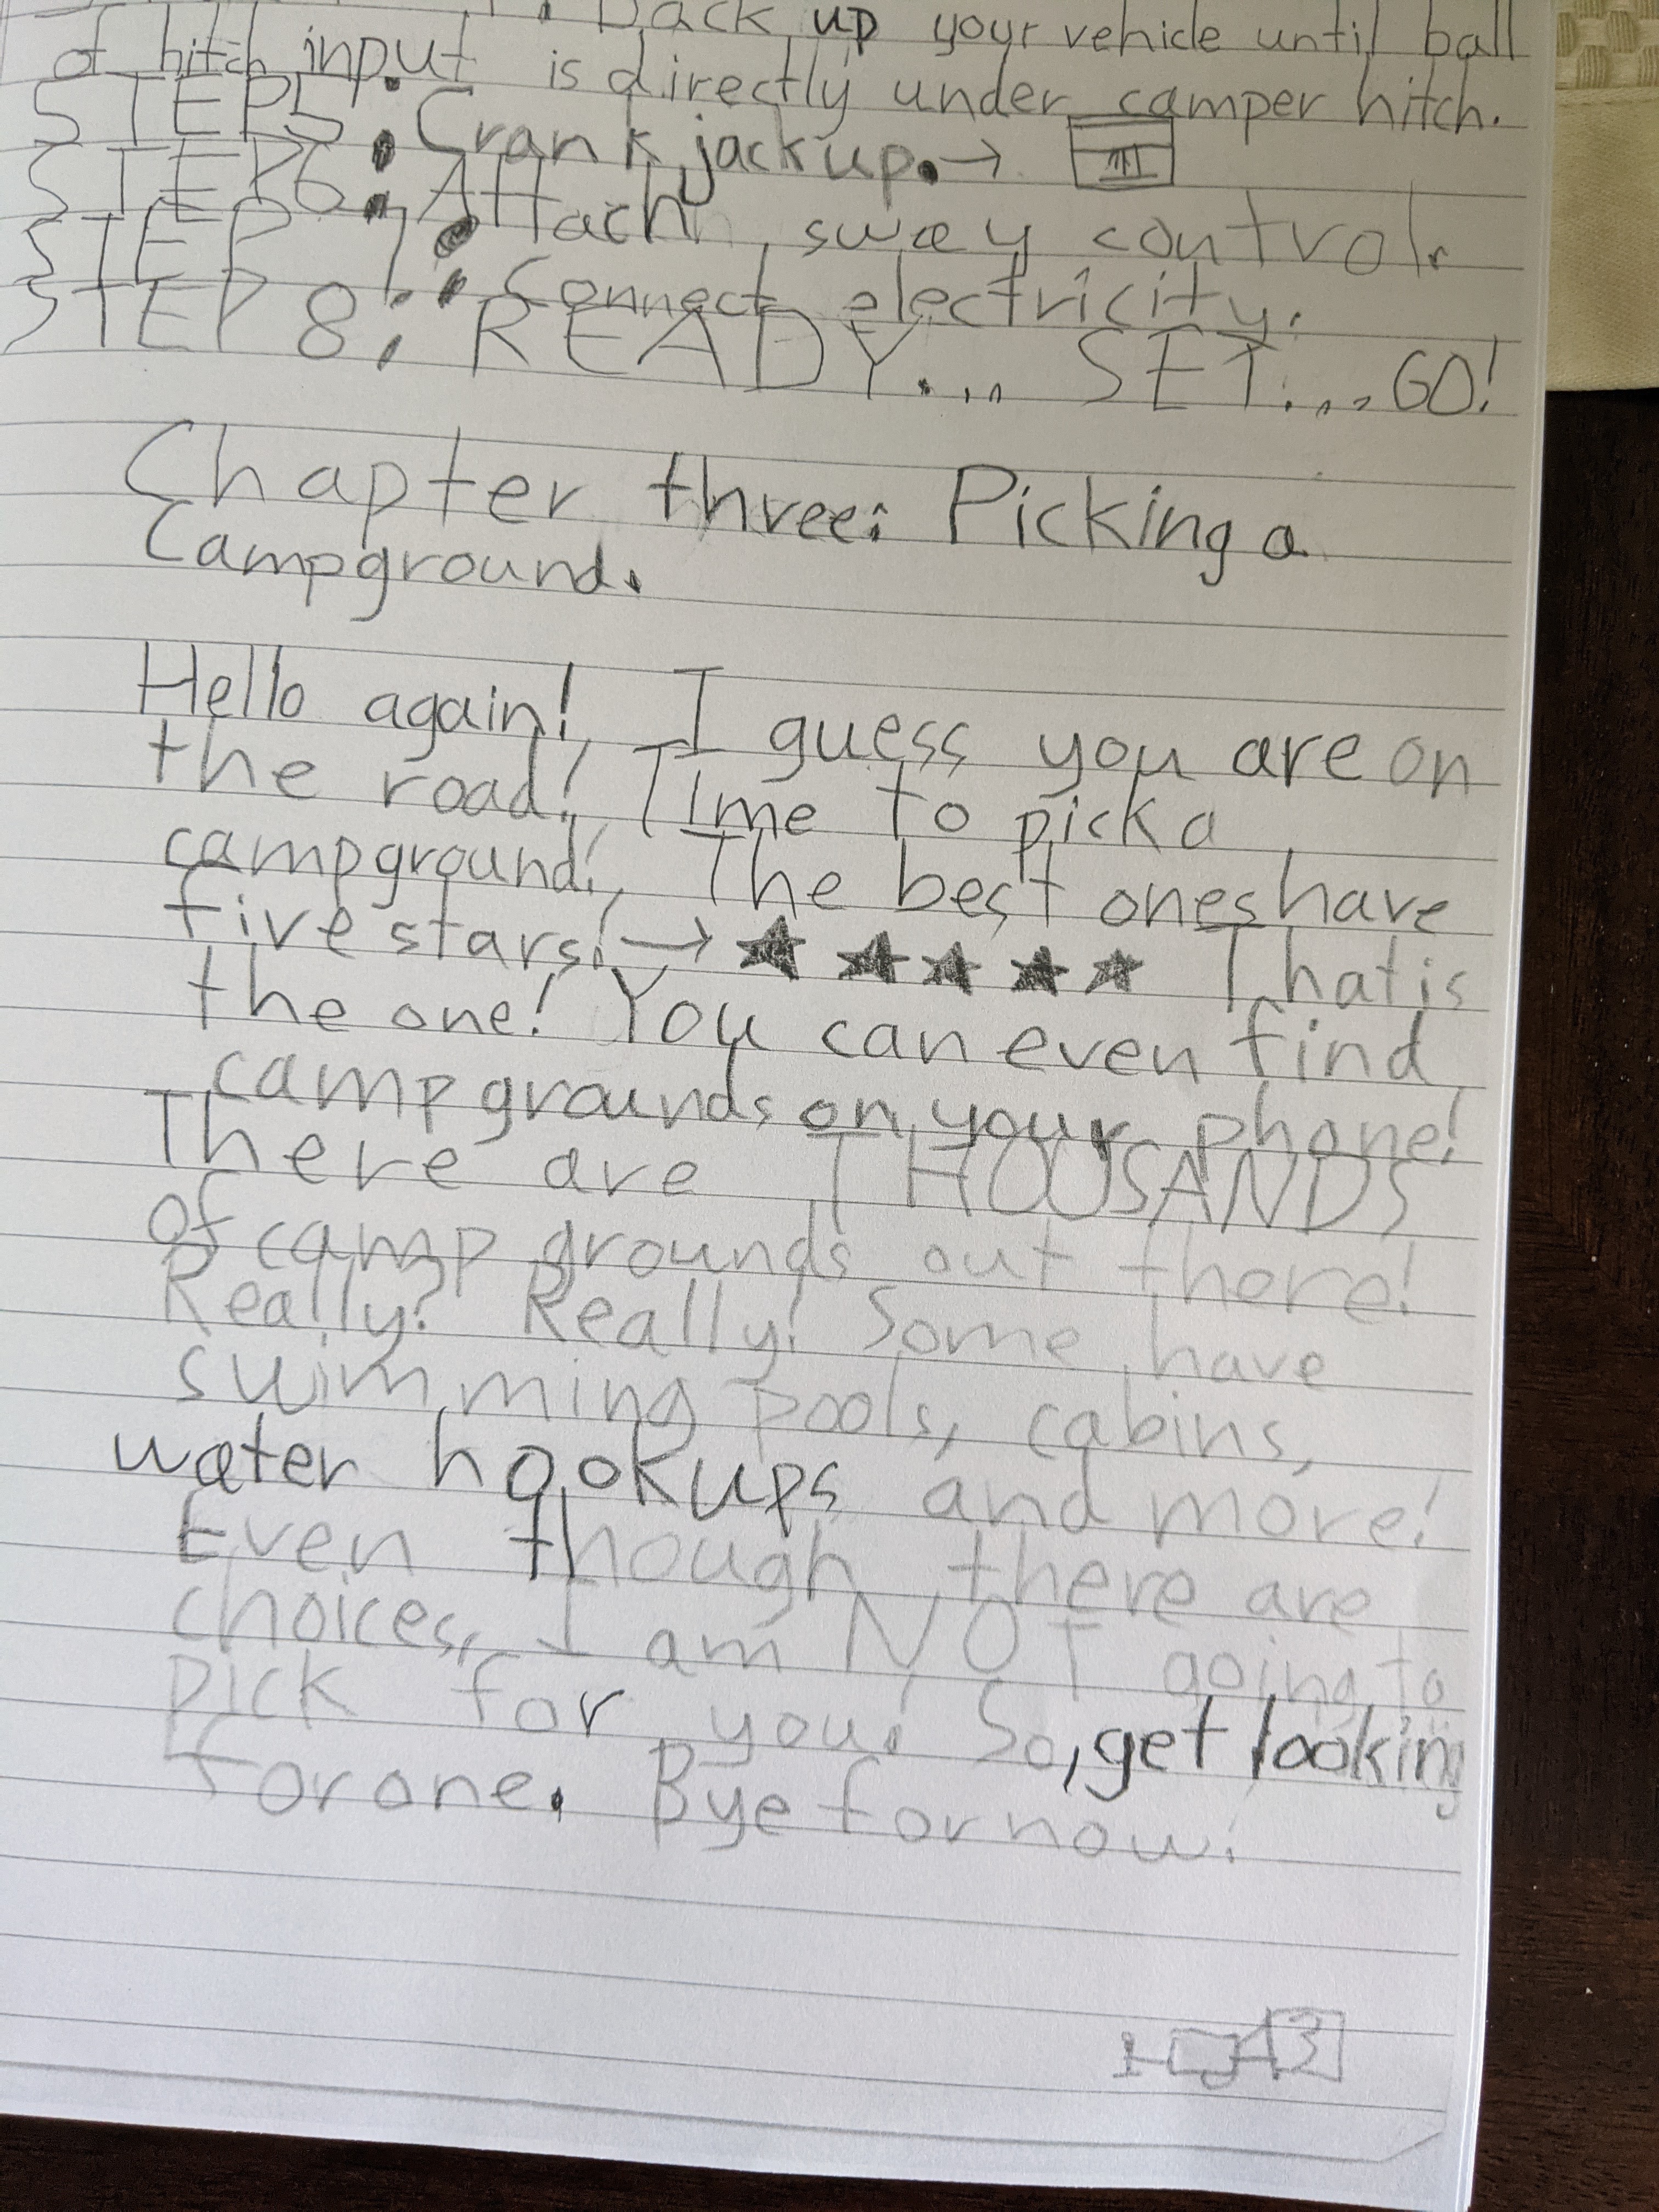 Back up your vehicle until ball
of hitch input is directly under camper hitch.
STEP5: Crank jack up.→
STEP6: Attach sway control.
STEP 7: Connect electricity.
STEP 8: READY... SET... GO!
Chapter three: Picking a
Campground.
Hello again! I guess you are on
the road! Time to pick a
campground! The best ones have
five stars!→ ★ ★ ★ ★ ★ That is
the one! You can even find
campgrounds on your phone!
There are THOUSANDS
of camp grounds out there!
Really? Really! Some have
swimming pools, cabins,
water hookups and more!
Even though there are
choices, I am NOT going to
pick for you! So, get looking
for one. Bye for now!